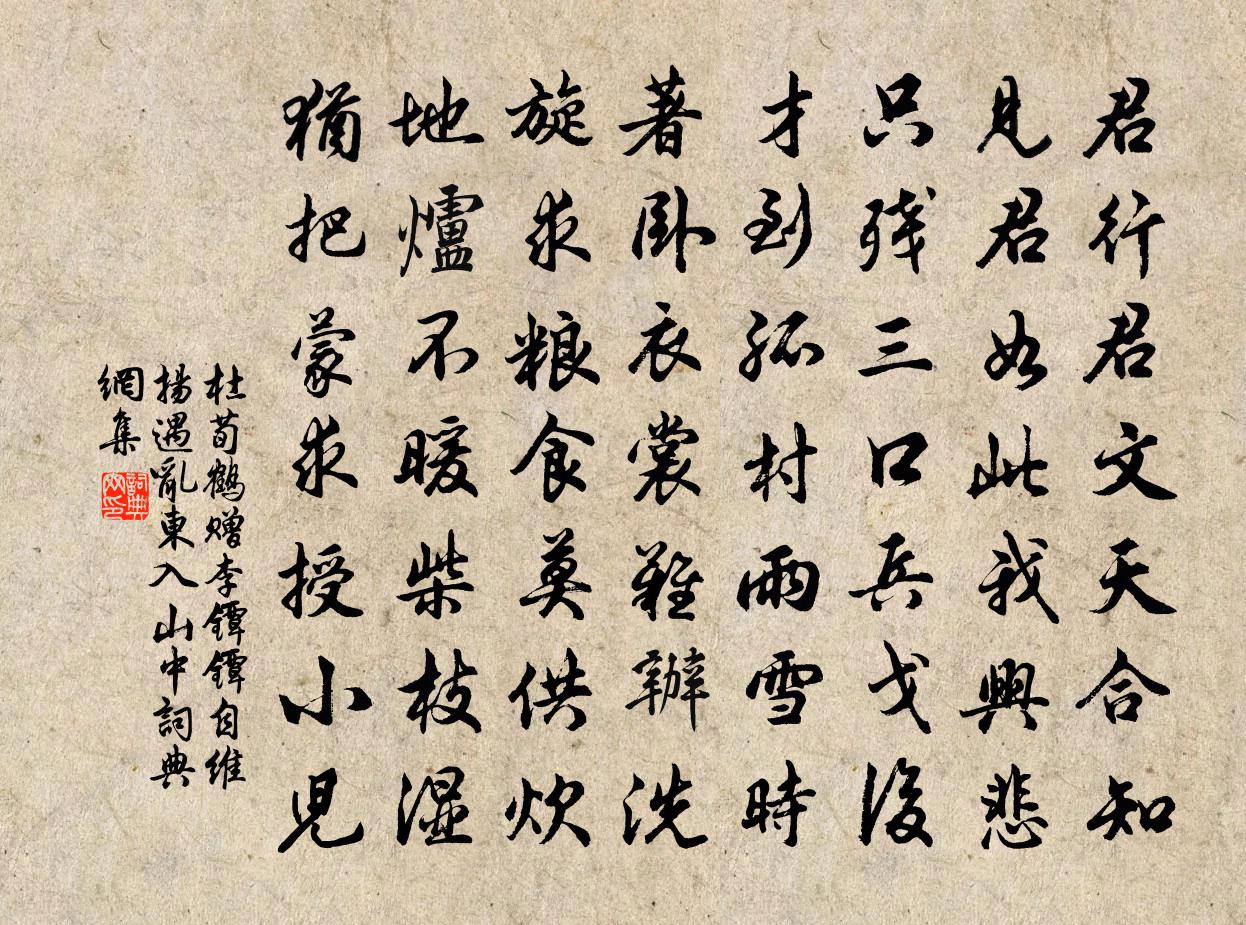 君行君文天合知
見君如此我興悲
只殘三口兵戈後
才到孤村雨雪時
著臥衣裳難辦洗
旋求粮食莫供炊
地爐不暖柴枝濕
猶把蒙求授小兒
杜荀鶴贈李鐔鐔自維
揚遇亂東入山中詞典
網集
詞典網印